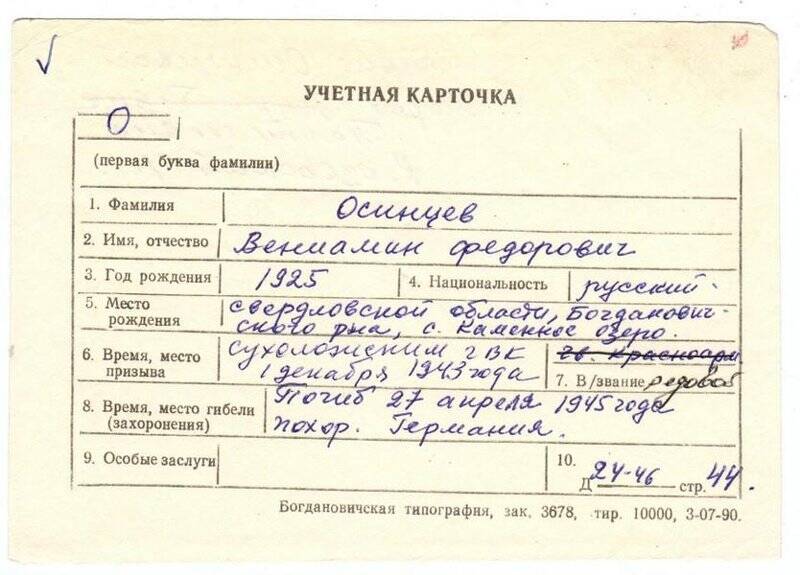 УЧЕТНАЯ КАРТОЧКА
О
(первая буква фамилии)
1. Фамилия Осинцев
2. Имя, отчество Вениамин Федорович
3. Год рождения 1925 4. Национальность русский.
5. Место рождения свердловской области, Богданович-
ского р-на, с. Каменное озеро.
6. Время, место призыва Сухоложским ГВК
1 декабря 1943 года
гв. красноарм.
7. В/звание рядовой
8. Время, место гибели (захоронения) Погиб 27 апреля 1945 года
похор. Германия.
9. Особые заслуги
10.
Д 24-46 стр. 44.
Богдановичская типография, зак. 3678, тир. 10000, 3-07-90.